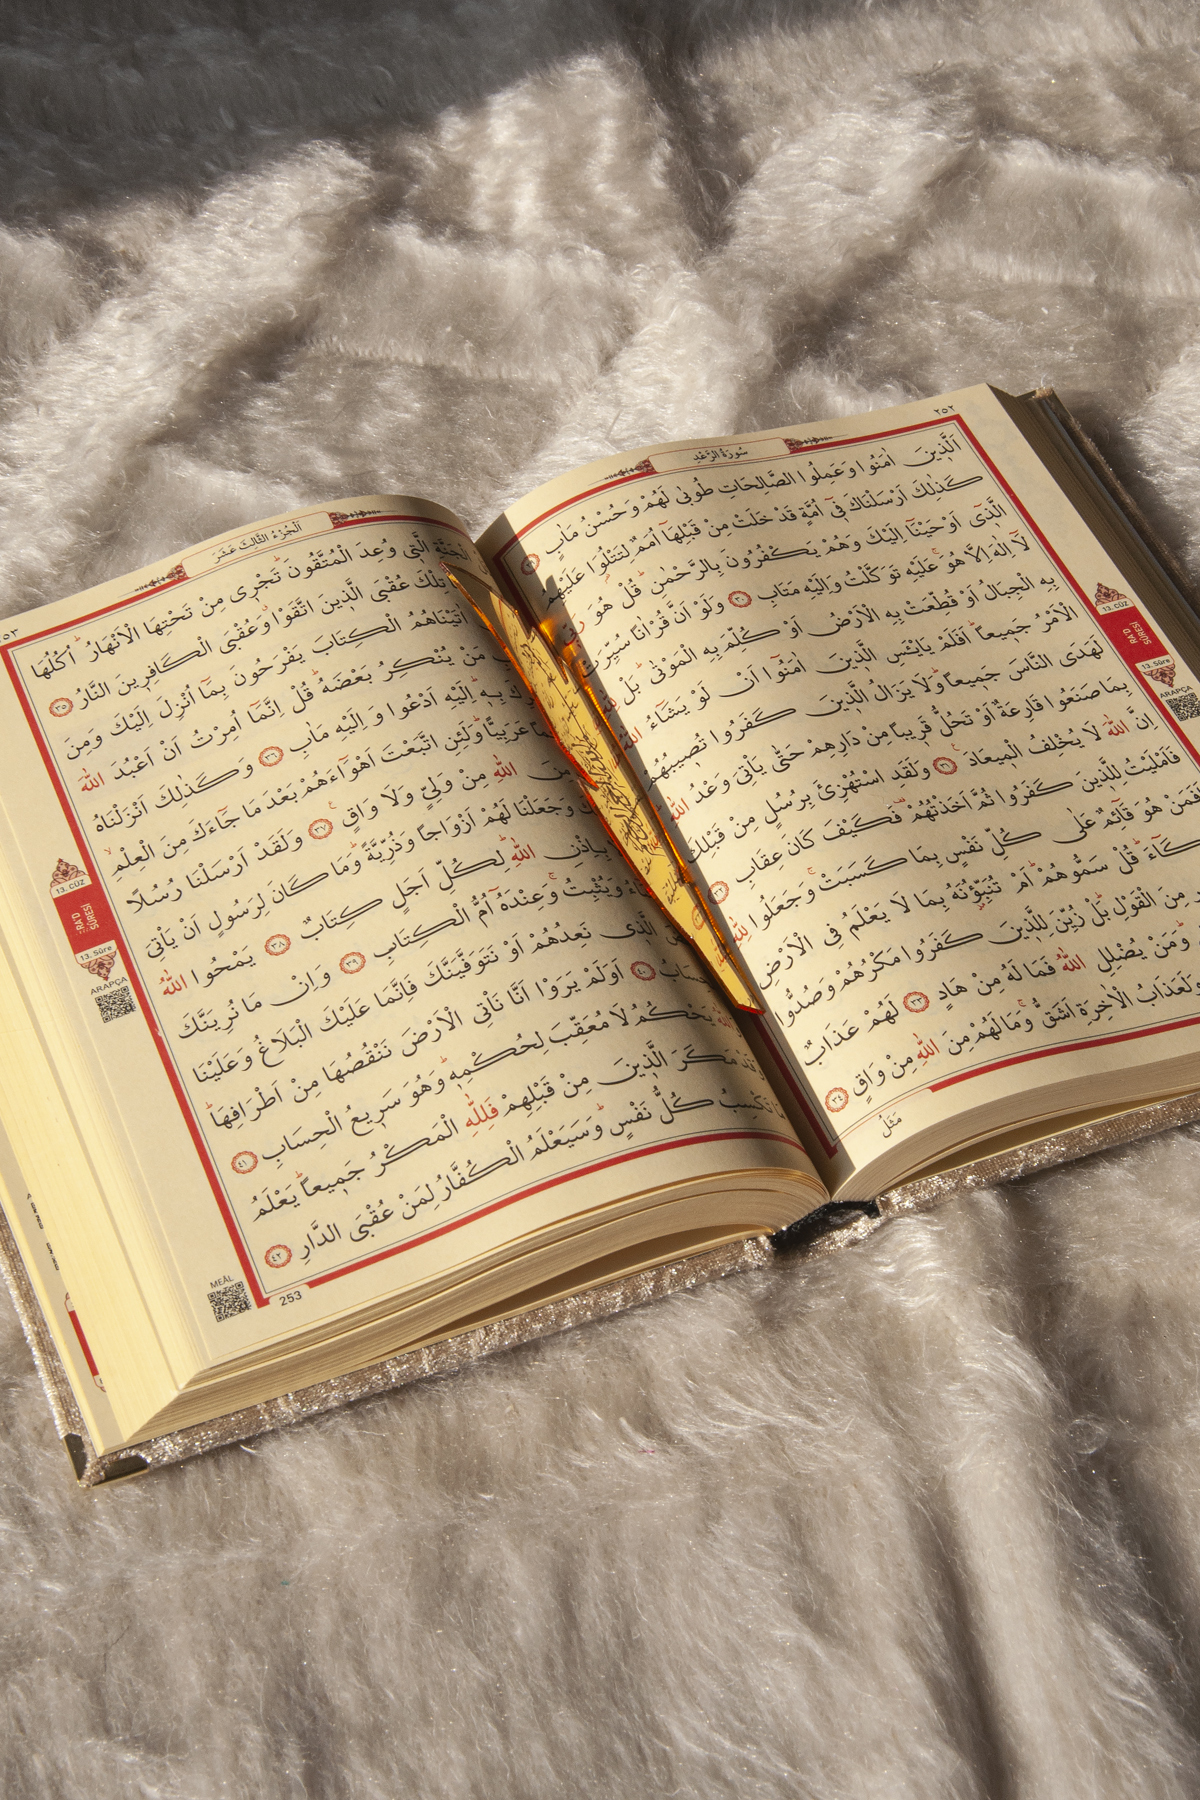 ٢٥٢
سُورَةُ الرَّعْدِ
اَلَّذ۪ينَ اٰمَنُوا وَعَمِلُوا الصَّالِحَاتِ طُوبٰى لَهُمْ وَحُسْنُ مَاٰبٍ
كَذٰلِكَ اَرْسَلْنَاكَ ف۪ٓي اُمَّةٍ قَدْ خَلَتْ مِنْ قَبْلِهَٓا اُمَمٌ لِتَتْلُوَ۬ا عَلَيْهِمُ
الَّذ۪ٓي اَوْحَيْنَٓا اِلَيْكَ وَهُمْ يَكْفُرُونَ بِالرَّحْمٰنِۜ قُلْ هُوَ
لَٓا اِلٰهَ اِلَّا هُوَۚ عَلَيْهِ تَوَكَّلْتُ وَاِلَيْهِ مَتَابِ ٣٠ وَلَوْ اَنَّ قُرْاٰنًا سُيِّرَتْ
بِهِ الْجِبَالُ اَوْ قُطِّعَتْ بِهِ الْاَرْضُ اَوْ كُلِّمَ بِهِ الْمَوْتٰىۜ بَلْ
الْاَمْرُ جَم۪يعًاۜ اَفَلَمْ يَايْـَٔسِ الَّذ۪ينَ اٰمَنُٓوا اَنْ لَوْ يَشَٓاءُ اللّٰهُ
لَهَدَى النَّاسَ جَم۪يعًاۜ وَلَا يَزَالُ الَّذ۪ينَ كَفَرُوا تُص۪يبُهُمْ
بِمَا صَنَعُوا قَارِعَةٌ اَوْ تَحُلُّ قَر۪يبًا مِنْ دَارِهِمْ حَتّٰى يَأْتِيَ وَعْدُ اللّٰهِۜ
اِنَّ اللّٰهَ لَا يُخْلِفُ الْم۪يعَادَ۟ ٣١ وَلَقَدِ اسْتُهْزِئَ بِرُسُلٍ مِنْ قَبْلِكَ
فَاَمْلَيْتُ لِلَّذ۪ينَ كَفَرُوا ثُمَّ اَخَذْتُهُمْ فَكَيْفَ كَانَ عِقَابِ ٣٢
اَفَمَنْ هُوَ قَٓائِمٌ عَلٰى كُلِّ نَفْسٍ بِمَا كَسَبَتْۚ وَجَعَلُوا لِلّٰهِ
قُلْ سَمُّوهُمْۜ اَمْ تُنَبِّؤُ۫نَهُ بِمَا لَا يَعْلَمُ فِي الْاَرْضِ
مِنَ الْقَوْلِۜ بَلْ زُيِّنَ لِلَّذ۪ينَ كَفَرُوا مَكْرُهُمْ وَصُدُّوا
وَمَنْ يُضْلِلِ اللّٰهُ فَمَا لَهُ مِنْ هَادٍ ٣٣ لَهُمْ عَذَابٌ
وَلَعَذَابُ الْاٰخِرَةِ اَشَقُّۚ وَمَا لَهُمْ مِنَ اللّٰهِ مِنْ وَاقٍ ٣٤
مَثَلُ
13. CÜZ
RA'D SÛRESİ
13. Sûre
ARAPÇA
اَلْجُزْءُ الثَّالِثَ عَشَرَ
الْجَنَّةِ الَّت۪ي وُعِدَ الْمُتَّقُونَۜ تَجْر۪ي مِنْ تَحْتِهَا الْاَنْهَارُۜ اُكُلُهَا
تِلْكَ عُقْبَى الَّذ۪ينَ اتَّقَوْاۗ وَعُقْبَى الْكَافِر۪ينَ النَّارُ ٣٥
اٰتَيْنَاهُمُ الْكِتَابَ يَفْرَحُونَ بِمَٓا اُنْزِلَ اِلَيْكَ وَمِنَ
مَنْ يُنْكِرُ بَعْضَهُۜ قُلْ اِنَّمَٓا اُمِرْتُ اَنْ اَعْبُدَ اللّٰهَ
بِه۪ۜ اِلَيْهِ اَدْعُوا وَاِلَيْهِ مَاٰبِ ٣٦ وَكَذٰلِكَ اَنْزَلْنَاهُ
عَرَبِيًّاۜ وَلَئِنِ اتَّبَعْتَ اَهْوَٓاءَهُمْ بَعْدَ مَا جَٓاءَكَ مِنَ الْعِلْمِۙ
مِنَ اللّٰهِ مِنْ وَلِيٍّ وَلَا وَاقٍ۟ ٣٧ وَلَقَدْ اَرْسَلْنَا رُسُلًا
وَجَعَلْنَا لَهُمْ اَزْوَاجًا وَذُرِّيَّةًۜ وَمَا كَانَ لِرَسُولٍ اَنْ يَأْتِيَ
بِاِذْنِ اللّٰهِۜ لِكُلِّ اَجَلٍ كِتَابٌ ٣٨ يَمْحُوا اللّٰهُ
وَيُثْبِتُۚ وَعِنْدَهُٓ اُمُّ الْكِتَابِ ٣٩ وَاِنْ مَا نُرِيَنَّكَ
الَّذ۪ي نَعِدُهُمْ اَوْ نَتَوَفَّيَنَّكَ فَاِنَّمَا عَلَيْكَ الْبَلَاغُ وَعَلَيْنَا
الْحِسَابُ ٤٠ اَوَلَمْ يَرَوْا اَنَّا نَأْتِي الْاَرْضَ نَنْقُصُهَا مِنْ اَطْرَافِهَاۜ
يَحْكُمُ لَا مُعَقِّبَ لِحُكْمِه۪ۜ وَهُوَ سَر۪يعُ الْحِسَابِ ٤١
وَقَدْ مَكَرَ الَّذ۪ينَ مِنْ قَبْلِهِمْ فَلِلّٰهِ الْمَكْرُ جَم۪يعًاۜ يَعْلَمُ
مَا تَكْسِبُ كُلُّ نَفْسٍۜ وَسَيَعْلَمُ الْكُفَّارُ لِمَنْ عُقْبَى الدَّارِ ٤٢
13. CÜZ
RA'D SÛRESİ
13. Sûre
ARAPÇA
MEÂL
253